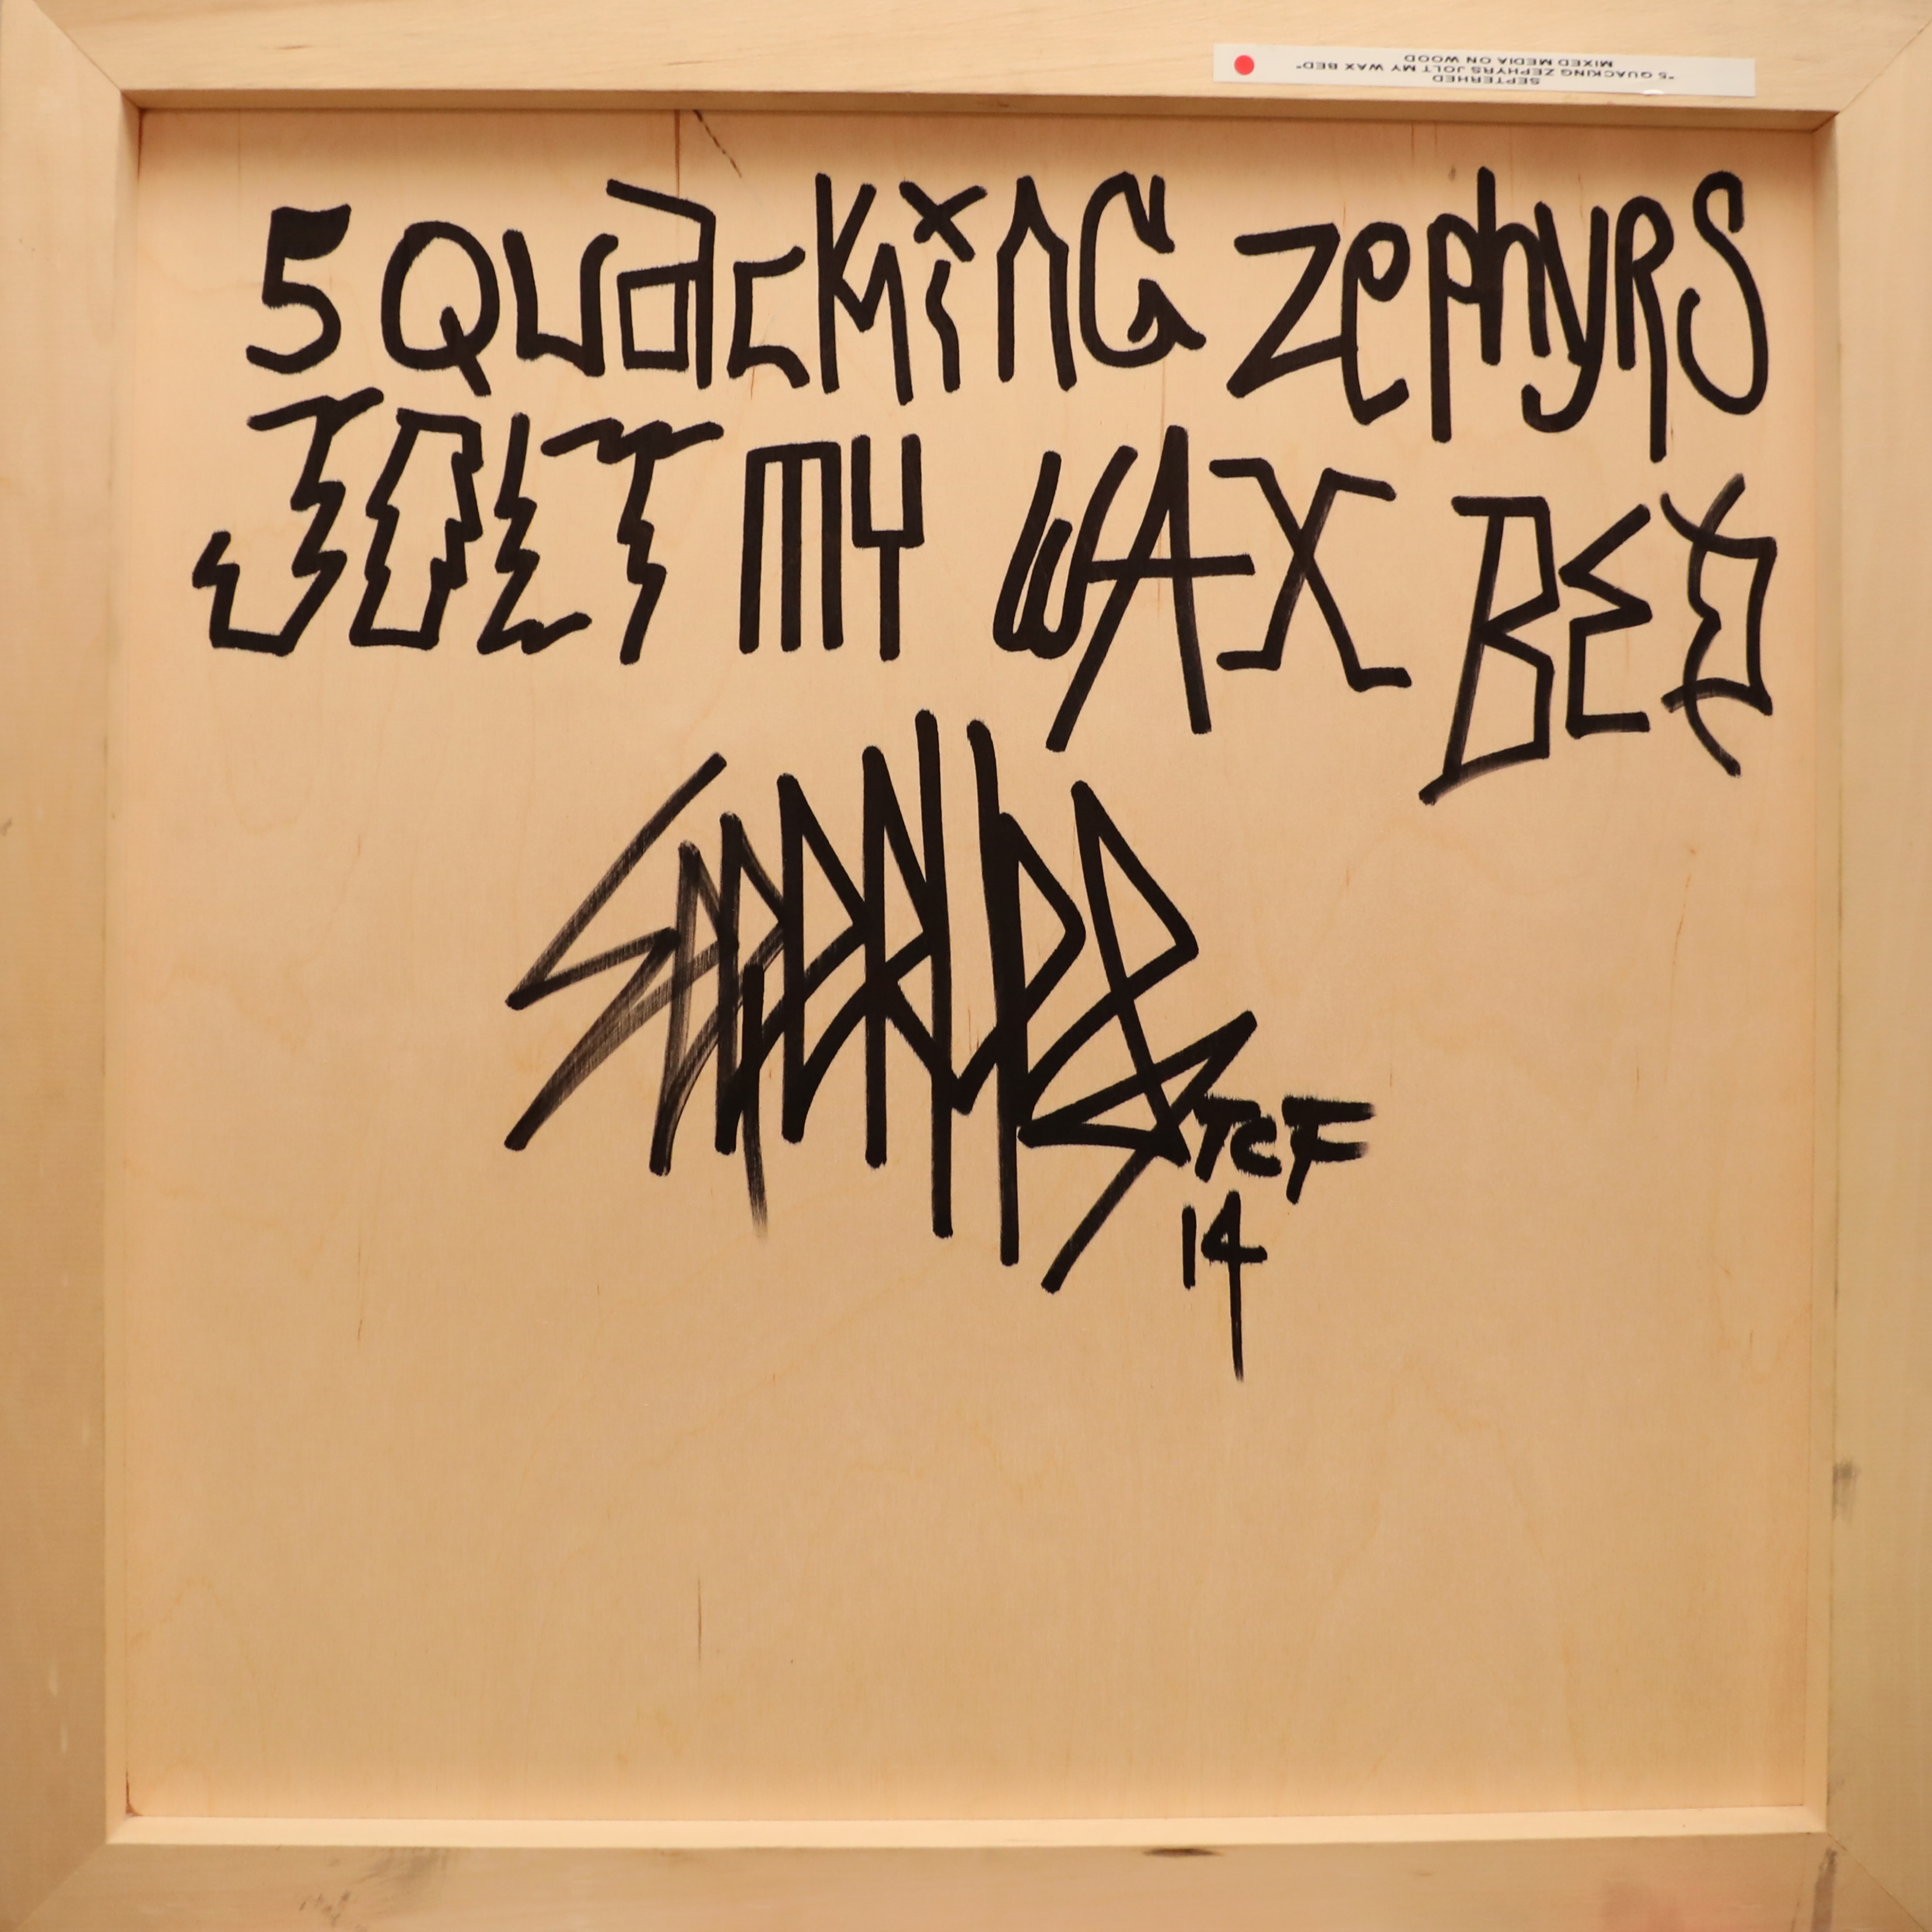 SEPTERHED
"5 QUACKING ZEPHYRS JOLT MY WAX BED"
MIXED MEDIA ON WOOD
5 QUacKiNG ZephyRS
JOLT MY WAX BED
TCF
14